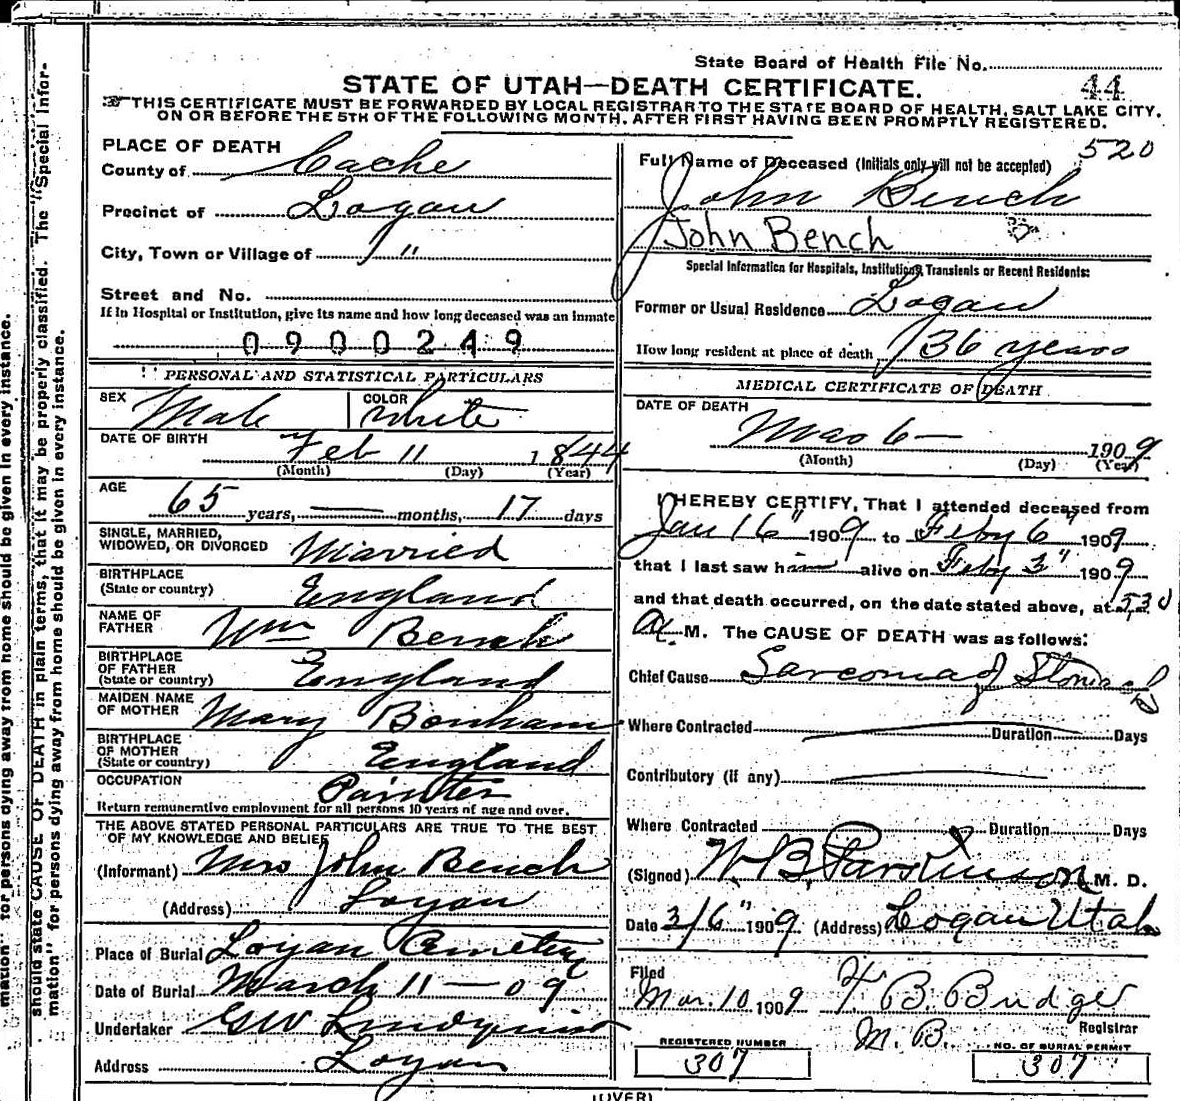 State Board of Health File No.
44
STATE OF UTAH—DEATH CERTIFICATE.
THIS CERTIFICATE MUST BE FORWARDED BY LOCAL REGISTRAR TO THE STATE BOARD OF HEALTH, SALT LAKE CITY,
ON OR BEFORE THE 5TH OF THE FOLLOWING MONTH, AFTER FIRST HAVING BEEN PROMPTLY REGISTERED.
PLACE OF DEATH
County of Cache
Precinct of Logan
City, Town or Village of "
Street and No.
If in Hospital or Institution, give its name and how long deceased was an inmate
0900249
PERSONAL AND STATISTICAL PARTICULARS
SEX Male COLOR White
DATE OF BIRTH Feb 11 1844
(Month) (Day) (Year)
AGE 65 years, — months, 17 days
SINGLE, MARRIED,
WIDOWED, OR DIVORCED Married
BIRTHPLACE
(State or country) England
NAME OF
FATHER Wm Bench
BIRTHPLACE
OF FATHER
(State or country) England
MAIDEN NAME
OF MOTHER Mary Bonham
BIRTHPLACE
OF MOTHER
(State or country) England
OCCUPATION Painter
Return remunerative employment for all persons 10 years of age and over.
THE ABOVE STATED PERSONAL PARTICULARS ARE TRUE TO THE BEST
OF MY KNOWLEDGE AND BELIEF
(Informant) Mrs John Bench
(Address) Logan
Place of Burial Logan Cemetery
Date of Burial March 11 — 09
Undertaker GW Lindquist
Address Logan
520
Full Name of Deceased (Initials only will not be accepted)
John Bench
John Bench
Special Information for Hospitals, Institutions, Transients or Recent Residents:
Former or Usual Residence Logan
How long resident at place of death 36 years
MEDICAL CERTIFICATE OF DEATH
DATE OF DEATH
Mar 6 — 1909
(Month) (Day) (Year)
I HEREBY CERTIFY, That I attended deceased from
Jan 16" 1909 to Feby 6" 1909
that I last saw him alive on Feby 3" 1909
and that death occurred, on the date stated above, at 530
a M. The CAUSE OF DEATH was as follows:
Chief Cause Sarcoma of Stomach
Where Contracted Duration Days
Contributory (if any)
Where Contracted Duration Days
(Signed) W. B. Parkinson M. D.
Date 3/6" 1909 (Address) Logan Utah
Filed
Mar. 10 1909 B. Budge
M. Registrar
REGISTERED NUMBER
307
NO. OF BURIAL PERMIT
307
(OVER)
mation" for persons dying away from home should be given in every instance.
should state CAUSE OF DEATH in plain terms, that it may be properly classified. The "Special Infor-
mation" for persons dying away from home should be given in every instance.